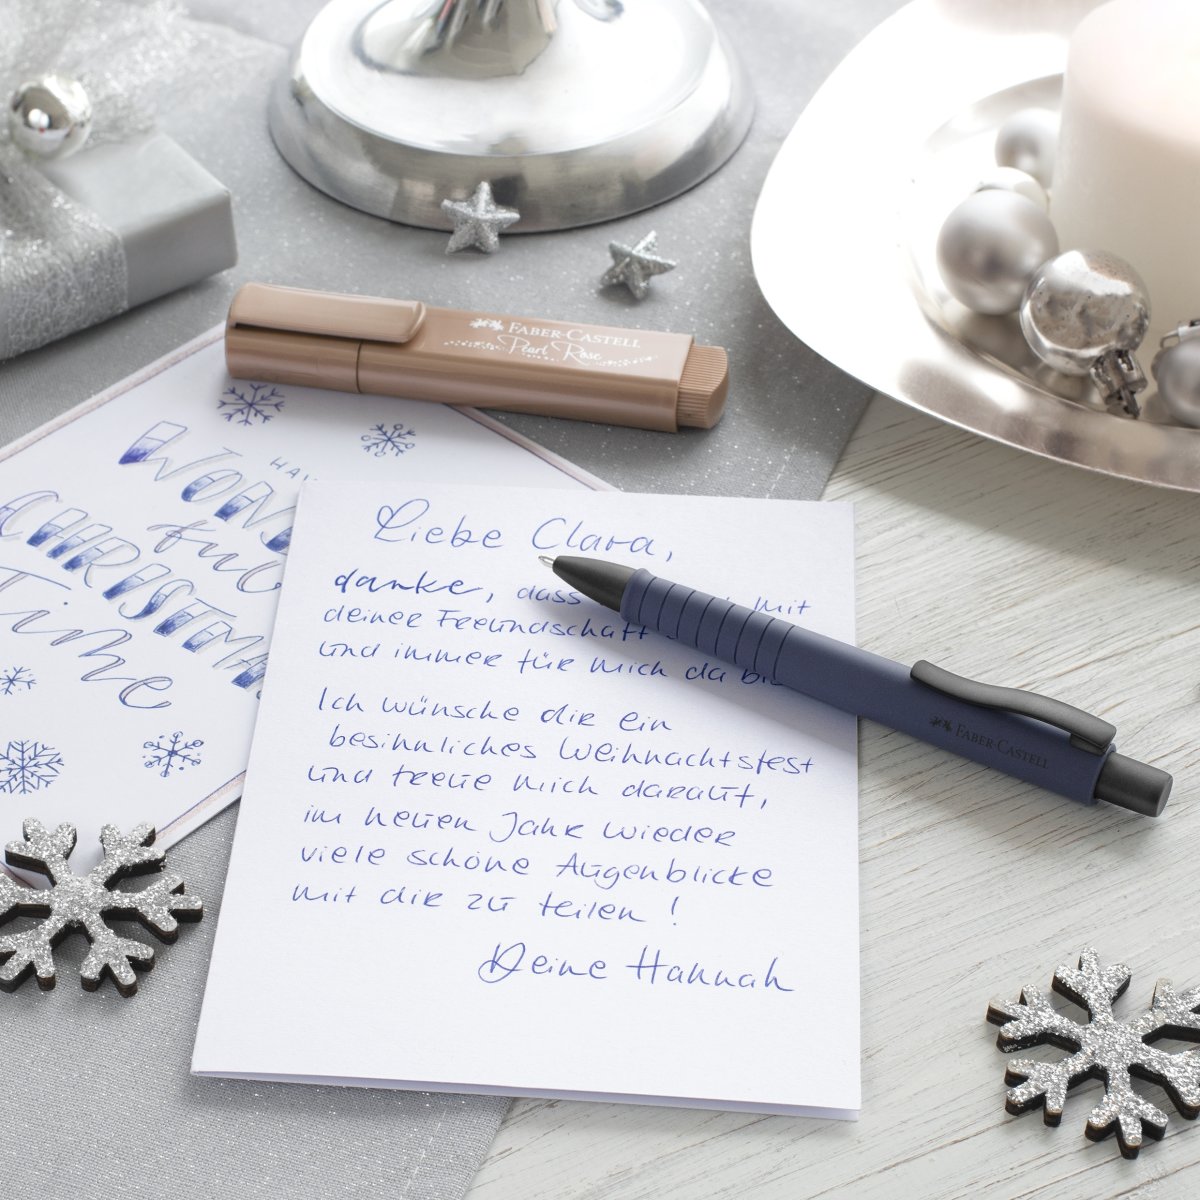 FABER-CASTELL
Pearl Rose
WOND
fine
CHRISTMA
Time
Liebe Clara,
danke, dass mit
deiner Freundschaft
und immer für mich da
Ich wünsche dir ein
besinnliches Weihnachtsfest
und freue mich darauf,
im neuen Jahr wieder
viele schöne Augenblicke
mit dir zu teilen!
Deine Hannah
FABER-CASTELL